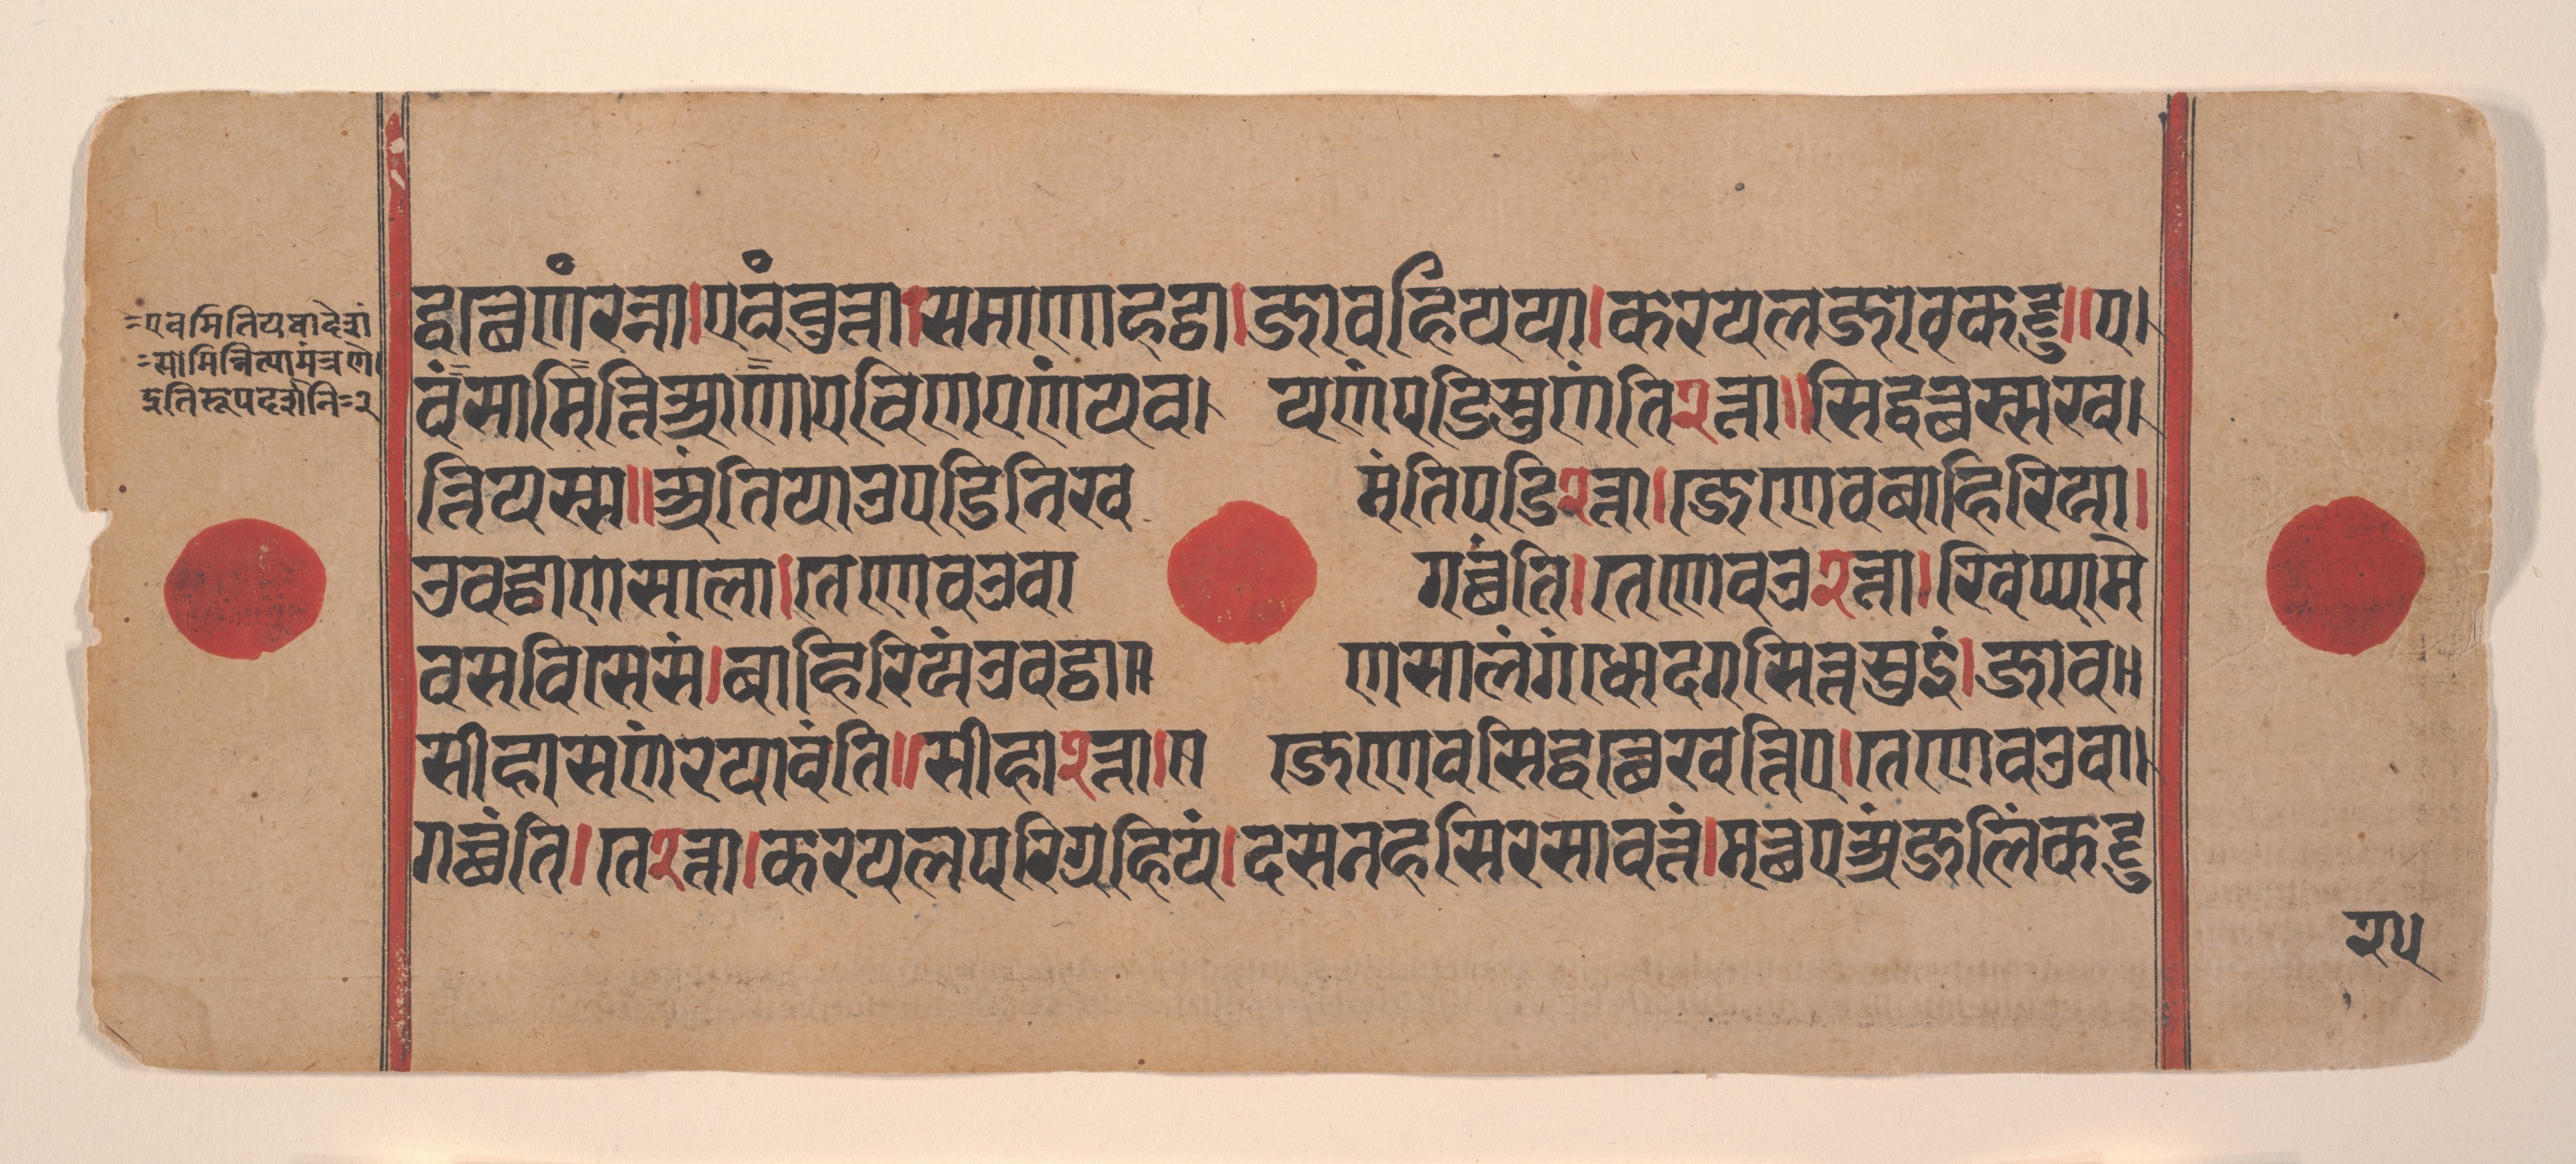 =एवमितियथादेशं
=सामिन्नित्यामंत्रणे।
इतिरूपदर्शने=२
द्धत्थेणंरन्ना।एवंवुत्ता।समाणाहट्ठा।जावहियया।करयलजावकट्टु॥ए।
वंसामित्तिआणाएविणएणंवयव। यणंपडिसुणंति२त्ता॥सिद्धत्थस्सखव।
त्तियस्स॥अंतियाउपडिनिख मंतिपडि२त्ता।जेणेवबाहिरिया।
उवट्ठाणसाला।तेणेवउवा गच्छंति।तेणेवउ२त्ता।खिप्पामे
वसविसेसं।बाहिरियंउवट्ठा॥ णसालंगंधोदगसित्तसुइं।जाव॥
सीहासणंरयावंति॥सीहा२त्ता।॥ जेणेवसिद्धत्थेखत्तिए।तेणेवउवा।
गच्छंति।ते२त्ता।करयलपरिग्रहियं।दसनहसिरसावत्तं।मत्थएअंजलिंकट्टु
२५